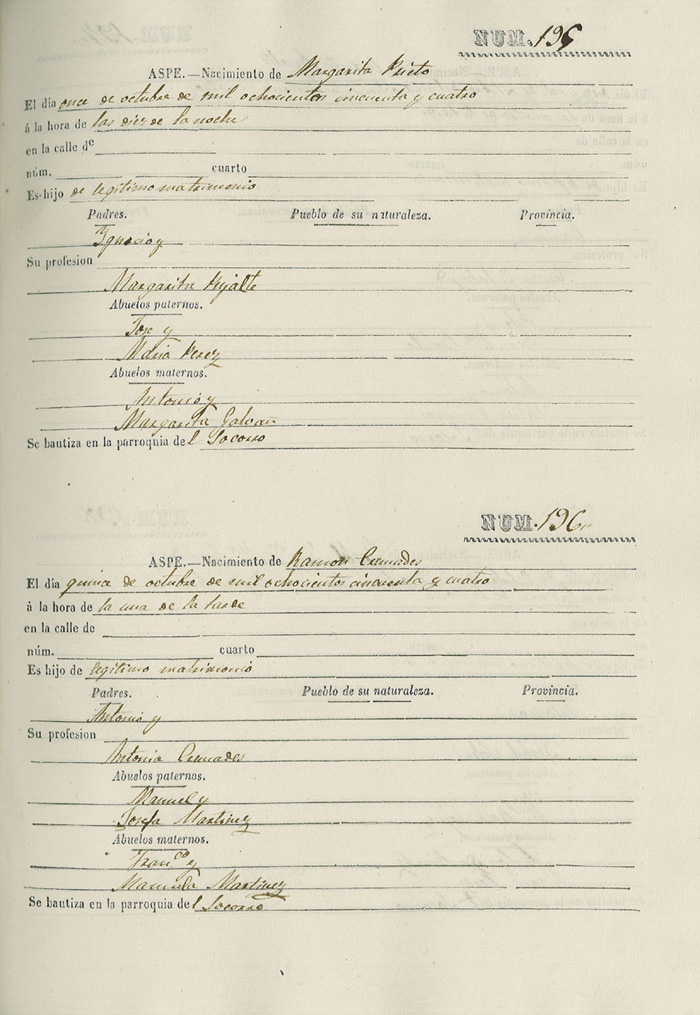 NUM. 195
ASPE.—Nacimiento de Margarita Prieto
El dia once de octubre de mil ochocientos cincuenta y cuatro
á la hora de las diez de la noche
en la calle de
núm. cuarto
Es hijo de legitimo matrimonio
Padres. Pueblo de su naturaleza. Provincia.
Ignacio y
Su profesion
Margarita Mialte
Abuelos paternos.
Jose y
Maria Perez
Abuelos maternos.
Antonio y
Margarita Galvañ
Se bautiza en la parroquia del Socorro
NUM. 196
ASPE.—Nacimiento de Ramon Cremades
El dia quince de octubre de mil ochocientos cincuenta y cuatro
á la hora de la una de la tarde
en la calle de
núm. cuarto
Es hijo de legitimo matrimonio
Padres. Pueblo de su naturaleza. Provincia.
Antonio y
Su profesion
Antonia Cremades
Abuelos paternos.
Manuel y
Josefa Martinez
Abuelos maternos.
Franco y
Manuela Martinez
Se bautiza en la parroquia del Socorro